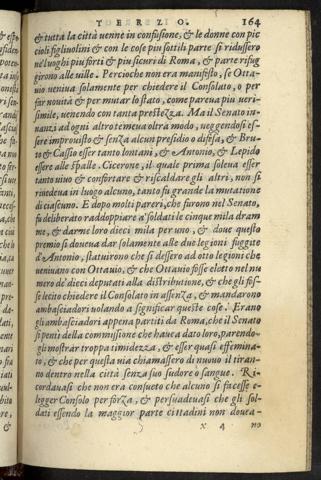 TOERZEIZO. 164
& tutta la città venne in confusione, & le donne con pic
cioli figliuolini & con le cose piu sottili parte si ridussero
ne' luoghi piu forti & piu sicuri di Roma, & parte rifug
girono alle ville. Percioche non era manifesto, se Otta-
uio veniua solamente per chiedere il Consolato, o per
far nouità & per mutar lo stato, come pareua piu veri-
simile, venendo con tanta prestezza. Ma il Senato in-
nanzi ad ogni altro temeua oltra modo, veggendosi es-
sere improuisto & senza alcun presidio o difesa, & Bru-
to & Cassio esser tanto lontani, & Antonio, & Lepido
essere alle spalle. Cicerone, il quale prima soleua esser
tanto viuo & confortare & riscaldare gli altri, non si
riuedeua in luogo alcuno, tanto fu grande la mutatione
di ciascuno. E dopo molti pareri, che furono nel Senato,
fu deliberato raddoppiare a' soldati le cinque mila dram
me, & darne loro dieci mila per uno, & doue questo
premio si doueua dar solamente alle due legioni fuggite
d'Antonio, statuirono che si dessero ad otto legioni che
veniuano con Ottauio, & che Ottauio fosse eletto nel nu
mero de' dieci deputati alla distributione, & che gli fos-
se lecito chiedere il Consolato in assenza, & mandarono
ambasciadori volando a significar queste cose. Erano
gli ambasciadori appena partiti da Roma, che il Senato
si penti della commissione che haueua dato loro, parendo-
gli mostrar troppa timidezza, & esser quasi effemina-
to, & che per questa via chiamassero di nuouo il tiran-
no dentro nella città senza suo sudore o sangue. Ri-
cordauasi che non era consueto che alcuno si facesse e-
legger Consolo per forza, & persuadeuasi che gli sol-
dati essendo la maggior parte cittadini non douea-
x 4 no